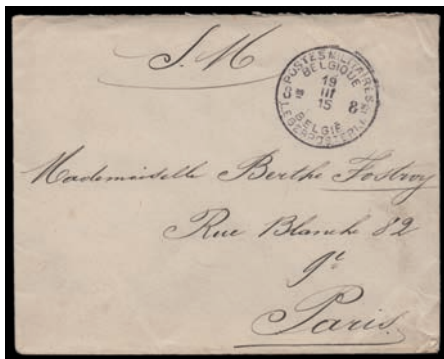 S. M
POSTES MILITAIRES
BELGIQUE
19
III
15
8
BELGIË
LEGERPOSTERIJ
Mademoiselle Berthe
Rue Blanche 82
Paris